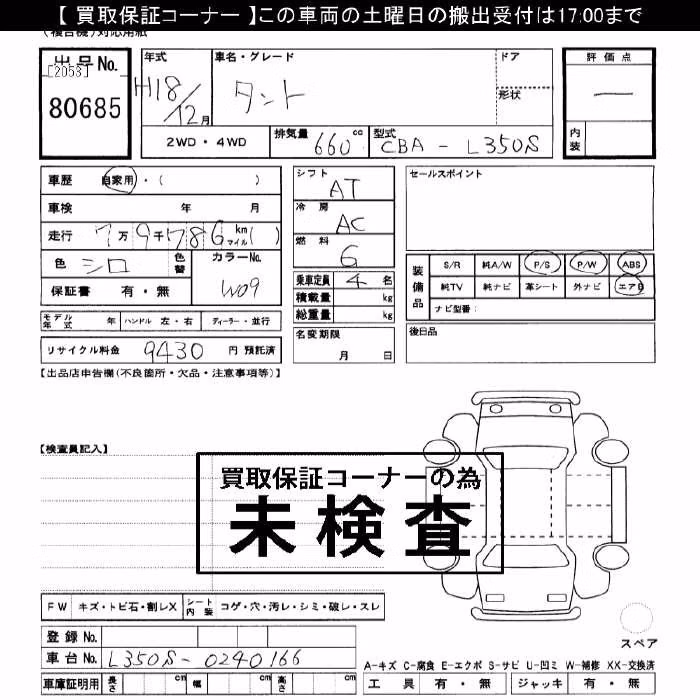 【 買取保証コーナー 】この車両の土曜日の搬出受付は17:00まで
(複合機)対応用紙
出品No.
[2053]
80685
年式
H18/12月
車名・グレード
タント
ドア
形状
評価点
ー
内装
2WD・4WD
排気量 660 cc
型式 CBA - L350S
車歴 自家用・( )
車検 年 月
走行 7万9千786 km マイル( )
色 シロ
色替
カラーNo. W09
保証書 有・無
シフト AT
冷房 AC
燃料 G
乗車定員 4 名
積載量 kg
総重量 kg
名変期限
月 日
セールスポイント
装備品
S/R 純A/W P/S P/W ABS
純TV 純ナビ 革シート 外ナビ エアB
ナビ型番:
後日品
モデル年式 年 ハンドル 左・右 ディーラー・並行
リサイクル料金 9430 円 預託済
【出品店申告欄(不良箇所・欠品・注意事項等)】
【検査員記入】
買取保証コーナーの為
未検査
FW キズ・トビ石・割レX シート内装 コゲ・穴・汚レ・シミ・破レ・スレ
登録No.
車台No. L350S-0240166
車庫証明用 長さ cm 幅 cm 高さ cm
スペア
A-キズ C-腐食 E-エクボ S-サビ U-凹ミ W-補修 XX-交換済
工具 有・無 ジャッキ 有・無